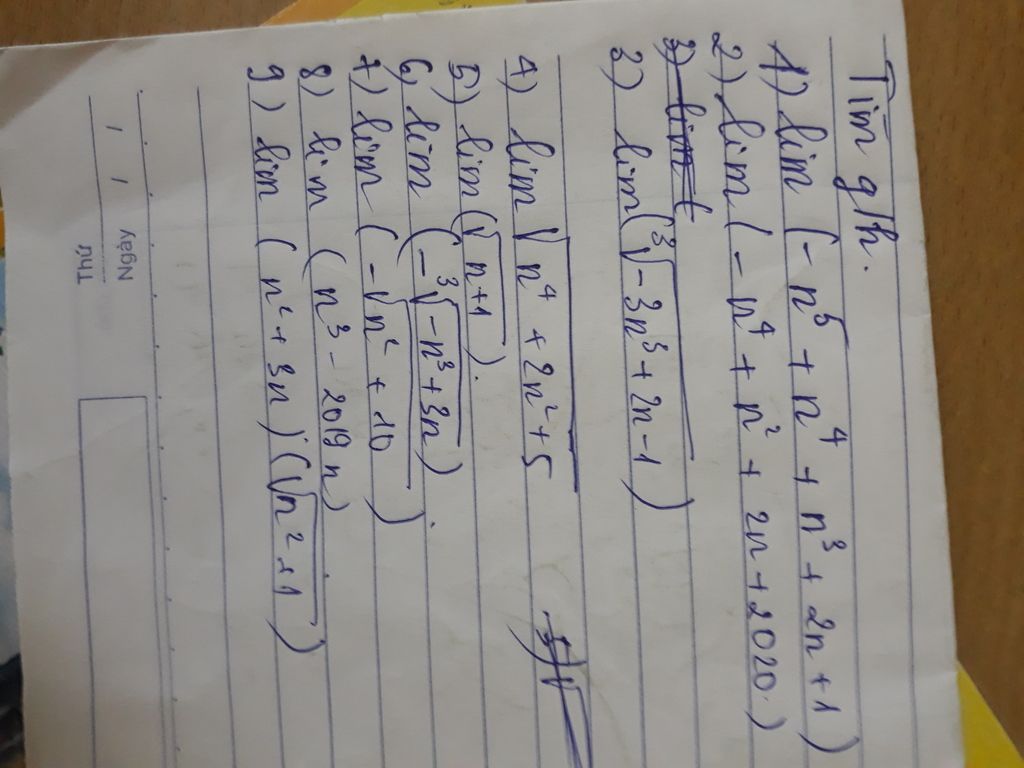 Tìm g/h.
1) lim (-n⁵ + n⁴ + n³ + 2n + 1)
2) lim (-n⁴ + n² + 2n + 2020.)
3) lim
3) lim (∛-3n³ + 2n - 1)
4) lim √n⁴ + 2n² + 5
5) √
5) lim (√n+1).
6) lim (-∛-n³ + 3n)
7) lim (-√n² + 10).
8) lim (n³ - 2019n)
9) lim (n² + 3n) (√n² + 1)
Thứ
Ngày / /